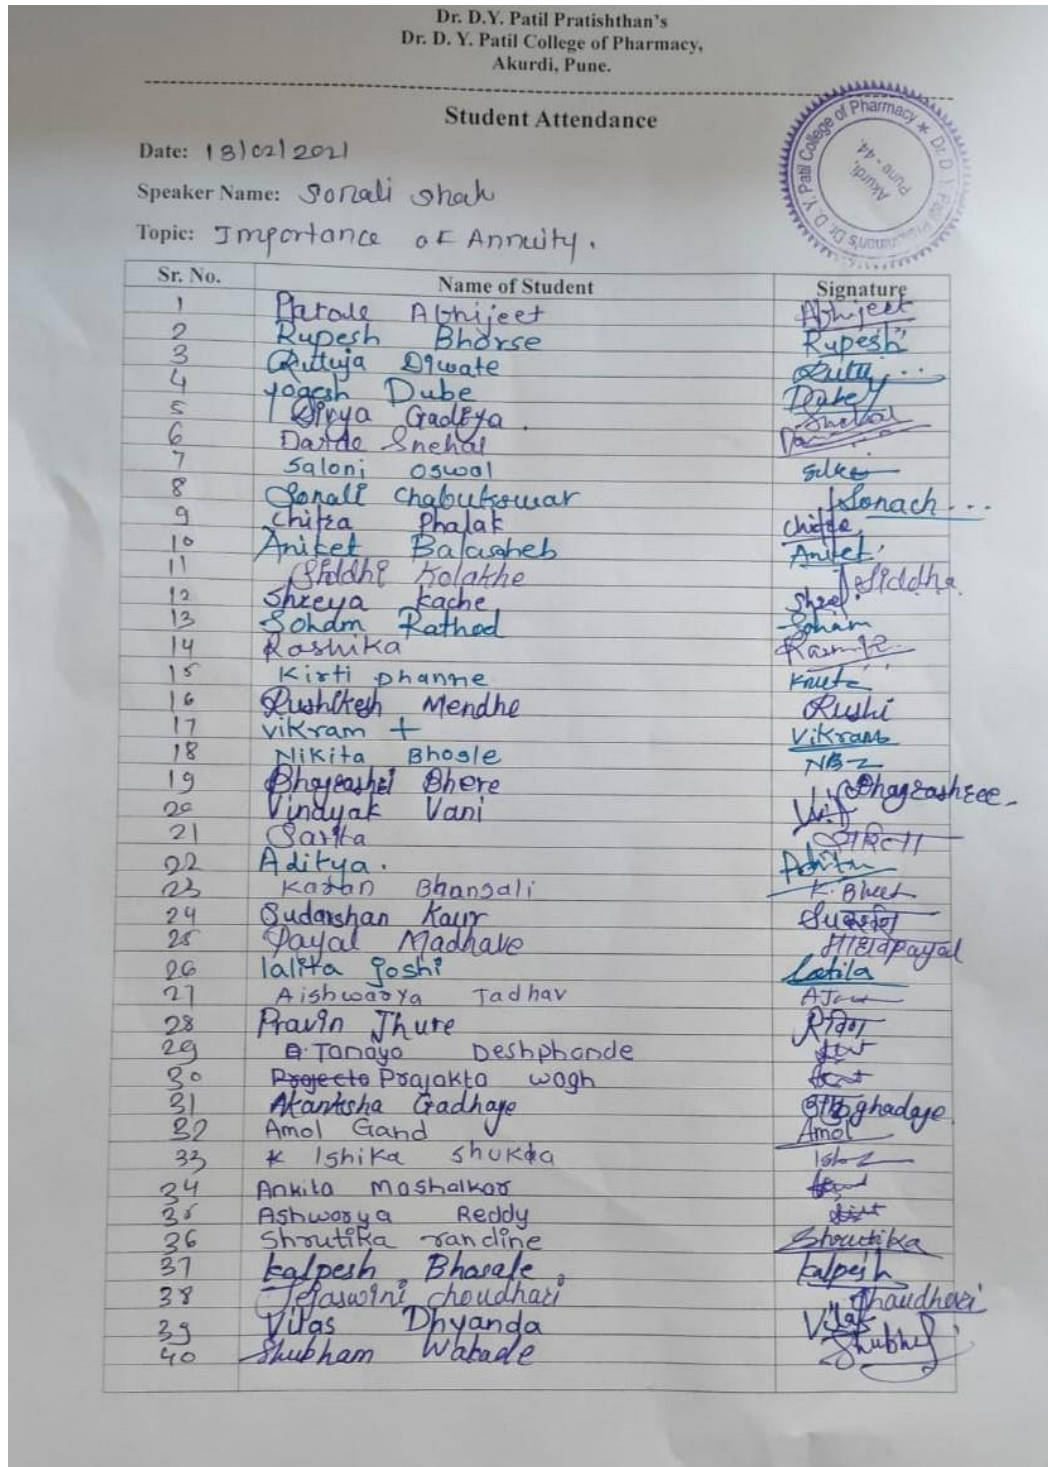 Dr. D.Y. Patil Pratishthan's
Dr. D. Y. Patil College of Pharmacy,
Akurdi, Pune.
Student Attendance
Dr. D. Y. Patil College of Pharmacy ★ Dr. D. Y. Patil Pratishthan's
Akurdi,
Pune - 44.
Date: 13/02/2021
Speaker Name: Sonali Shah
Topic: Importance of Annuity.
Sr. No. Name of Student Signature
1 Abhijeet Abhijeet
2 Rupesh Bhorse Rupesh
3 Rutuja Diwate
4 yogesh Dube Dube
5 Divya Gadiya.
6 Darde Snehal Snehal
7 Saloni Oswal
8 Sonali Chabukswar Sonach...
9 Chitra Phalak Chitra
10 Aniket Balasaheb Aniket
11 Siddhi Kolakhe Siddha
12 Shreya kache
13 Sohdm Rathod Soham
14 Rashika
15 Kirti phanne
16 Rushikesh Mendhe Rushi
17 vikram + Vikram
18 Nikita Bhosle
19 Bhagrashri Bhere Bhagrashree
20 Vinayak Vani
21 Sarita सरिता
22 Aditya.
23 Karan Bhansali K. Bhest
24 Sudarshan Kaur
25 Payal Madhave
26 lalita Joshi
27 Aishwarya Jadhav
28 Pravin Jhure
29 Tanaya Deshphande
30 Prajakta wagh
31 Akanksha Gadhaje
32 Amol Gand Amol
33 Ishika Shukla
34 Ankita Mashalkar
35 Ashwarya Reddy
36 Shrutika randine Shrutika
37 kalpesh Bhasale kalpesh
38 Tejaswini choudhari Chaudhari
39 Vilas Dhyanda Vilas
40 Shubham Wabade